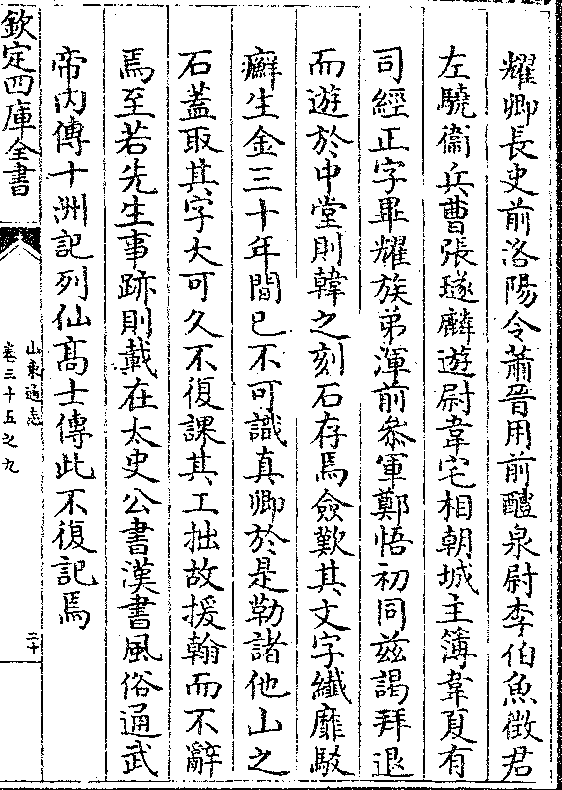 耀卿長史前洛陽令蕭晉用前醴泉尉李伯魚徵君
左驍衞兵曹張璲麟遊尉韋宅相朝城主簿韋夏有
司經正字畢耀族弟渾前叅軍鄭悟初同兹謁拜退
而遊於中堂則韓之刻石存焉僉歎其文字纖靡駮
癬生金三十年間已不可識真卿於是勒諸他山之
石蓋取其字大可久不復課其工拙故援翰而不辭
焉至若先生事跡則載在太史公書漢書風俗通武
帝内傳十洲記列仙髙士傳此不復記焉
欽定四庫全書
山東通志
卷三十五之九
二十